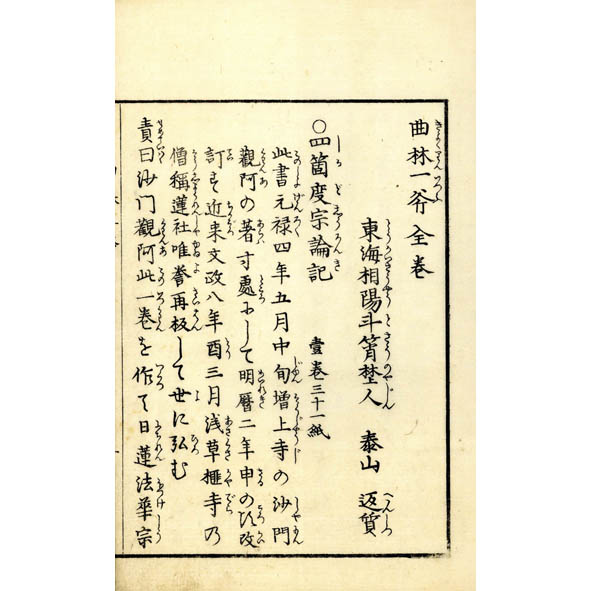 曲林一斧全巻
東海相陽斗筲埜人 泰山 返質
〇四箇度宗論記 壹巻三十一紙
此書元禄四年五月中旬増上寺の沙門
觀阿の著す處にして明暦二年申の頃改
訂す近来文政八年酉三月浅草榧寺乃
僧稱蓮社唯誉再板して世に弘む
責曰沙门觀阿此一巻を作て日蓮法華宗